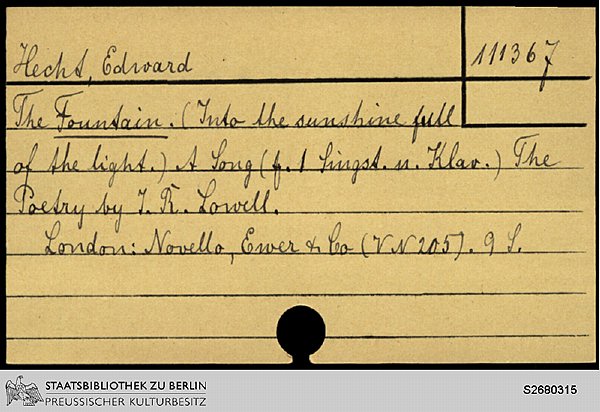 Hecht, Edward
111367
The Fountain. (Into the sunshine full
of the light.) A Song (f. 1 Singst. u. Klav.) The
Poetry by J. R. Lowell.
London: Novello, Ewer & Co (VN 205). 9 S.
STAATSBIBLIOTHEK ZU BERLIN
PREUSSISCHER KULTURBESITZ
S2680315